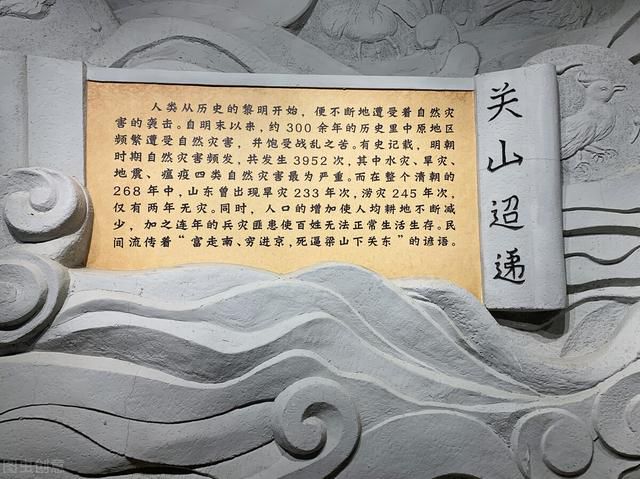 人类从历史的黎明开始，便不断地遭受着自然灾
害的袭击。自明末以来，约300余年的历史里中原地区
频繁遭受自然灾害，并饱受战乱之苦。有史记载，明朝
时期自然灾害频发，共发生3952次，其中水灾、旱灾、
地震、瘟疫四类自然灾害最为严重。而在整个清朝的
268年中，山东曾出现旱灾233年次，涝灾245年次，
仅有两年无灾。同时，人口的增加使人均耕地不断减
少，加之连年的兵灾匪患使百姓无法正常生活生存。民
间流传着“富走南、穷进京，死逼梁山下关东”的谚语。
关山迢递
图虫创意